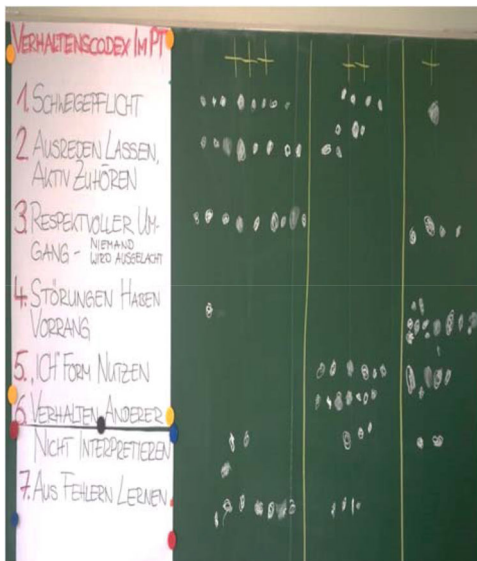 VERHALTENSCODEX IM PT
+++
++
+
1. SCHWEIGEPFLICHT
2. AUSREDEN LASSEN,
AKTIV ZUHÖREN
3. RESPEKTVOLLER UM-
GANG - NIEMAND
WIRD AUSGELACHT
4. STÖRUNGEN HABEN
VORRANG
5. „ICH" FORM NUTZEN
6. VERHALTEN ANDERER
NICHT INTERPRETIEREN
7. AUS FEHLERN LERNEN